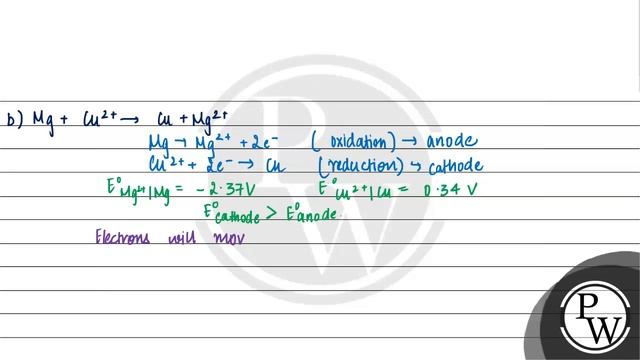 b) Mg + Cu²⁺ → Cu + Mg²⁺
Mg → Mg²⁺ + 2e⁻ (oxidation) → anode
Cu²⁺ + 2e⁻ → Cu (reduction) → cathode
E°Mg²⁺|Mg = -2.37V E°Cu²⁺|Cu = 0.34 V
E°cathode > E°anode.
Electrons will mov
P
W
P
W